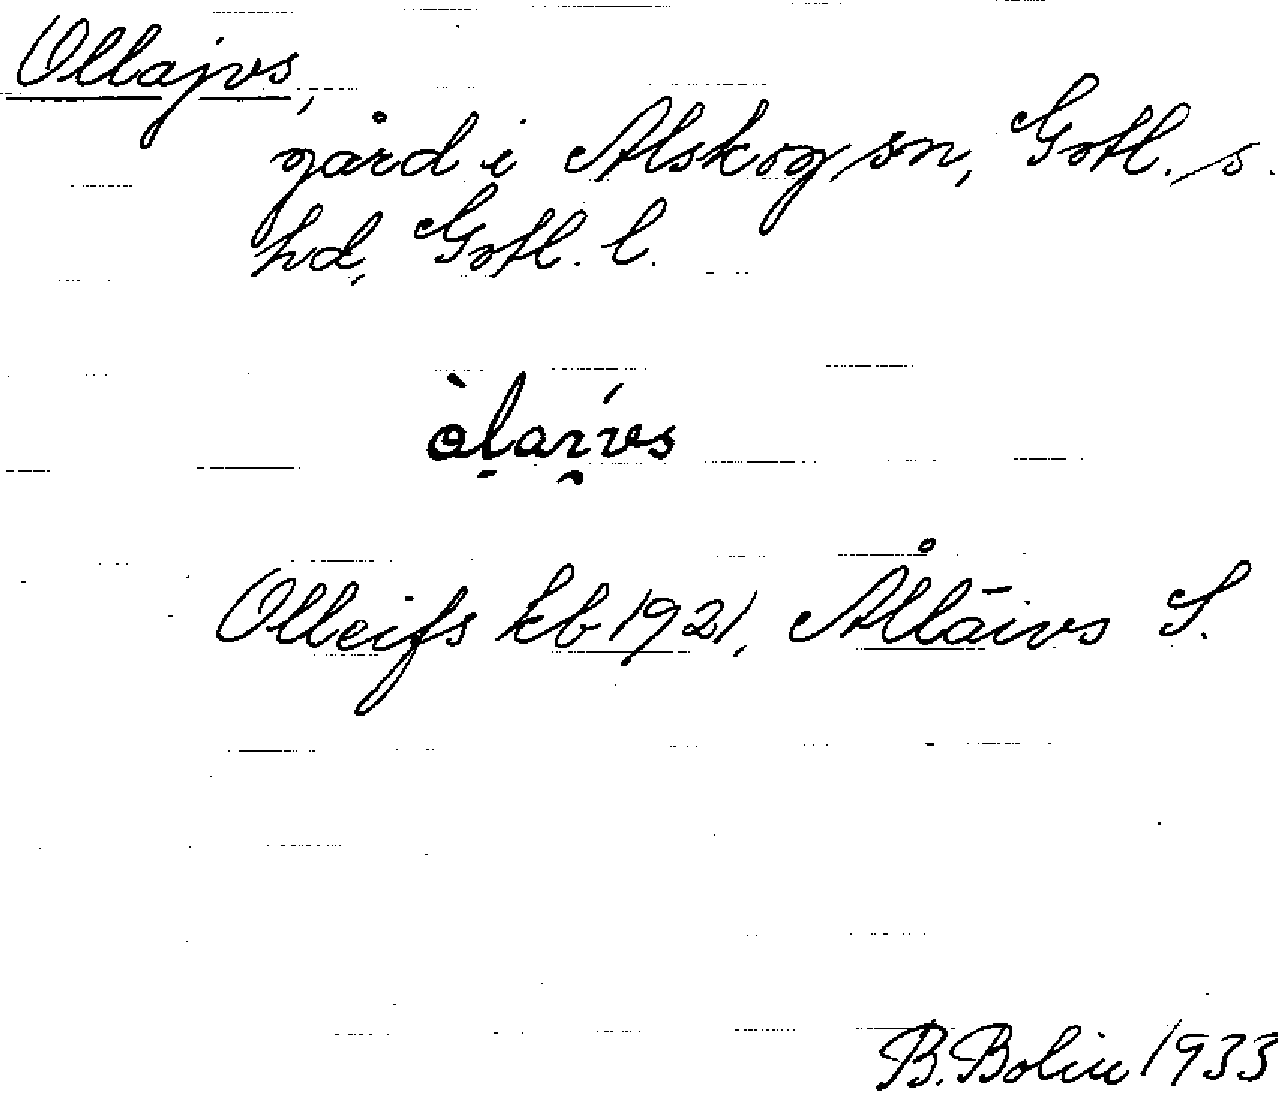 Ollajvs,
gård i Alskog sn, Gotl. s.
hd, Gotl. l.
Olleifs kb 1921, Ållāivs S.
B. Bolin 1933